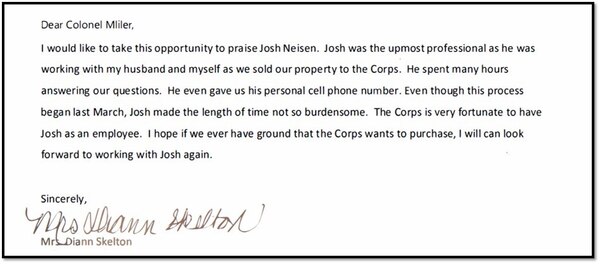 Dear Colonel Mliler,
I would like to take this opportunity to praise Josh Neisen.  Josh was the upmost professional as he was
working with my husband and myself as we sold our property to the Corps.  He spent many hours
answering our questions.  He even gave us his personal cell phone number. Even though this process
began last March, Josh made the length of time not so burdensome.  The Corps is very fortunate to have
Josh as an employee.  I hope if we ever have ground that the Corps wants to purchase, I will can look
forward to working with Josh again.
Sincerely,
Mrs Diann Skelton
Mrs Diann Skelton